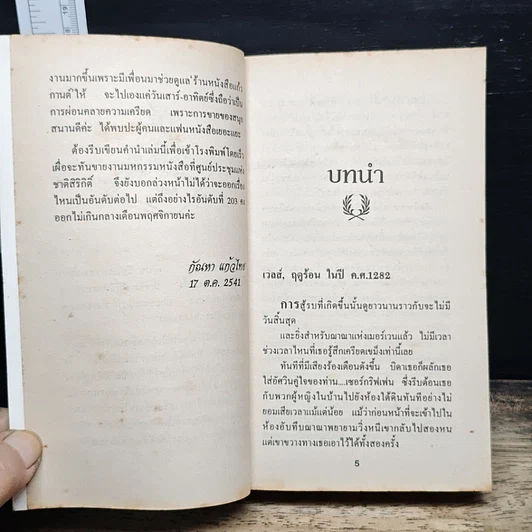 งานมากขึ้นเพราะมีเพื่อนมาช่วยดูแล ร้านหนังสือแก้ว
กานต์ ให้ จะไปเองแค่วันเสาร์-อาทิตย์ซึ่งถือว่าเป็น
การผ่อนคลายความเครียด เพราะการขายของสนุก
สนานดีค่ะ ได้พบปะผู้คนและแฟนหนังสือเยอะแยะ
ต้องรีบเขียนคำนำเล่มนี้เพื่อเข้าโรงพิมพ์โดยเร็ว
เผื่อจะทันขายงานมหกรรมหนังสือที่ศูนย์ประชุมแห่ง
ชาติสิริกิติ์ จึงยังบอกล่วงหน้าไม่ได้ว่าจะออกเรื่อง
ไหนเป็นอันดับต่อไป แต่ถึงอย่างไรอันดับที่ 203 คง
ออกไม่เกินกลางเดือนพฤศจิกายนค่ะ
กัณหา แก้วไทย
17 ต.ค. 2541
บทนำ
เวลส์, ฤดูร้อน ในปี ค.ศ.1282
การสู้รบที่เกิดขึ้นนั้นดูยาวนานราวกับจะไม่มี
วันสิ้นสุด
และยิ่งสำหรับฌาฌาแห่งเมอร์เวนแล้ว ไม่มีเวลา
ช่วงเวลาไหนที่เธอรู้สึกเครียดเขม็งเท่านี้เลย
ทันทีที่มีเสียงร้องเตือนดังขึ้น บิดาเธอก็ผลักเธอ
ใส่อัศวินคู่ใจของท่าน...เซอร์กริฟเฟน ซึ่งรีบต้อนเธอ
กับพวกผู้หญิงในบ้านไปยังห้องใต้ดินทันทีอย่างไม่
ยอมเสียเวลาแม้แต่น้อย แม้ว่าก่อนหน้าที่จะเข้าไปใน
ห้องอับทึบฌาฌาพยายามวิ่งหนีเขากลับไปสองหน
แต่เขาขวางทางเธอเอาไว้ได้ทั้งสองครั้ง
5